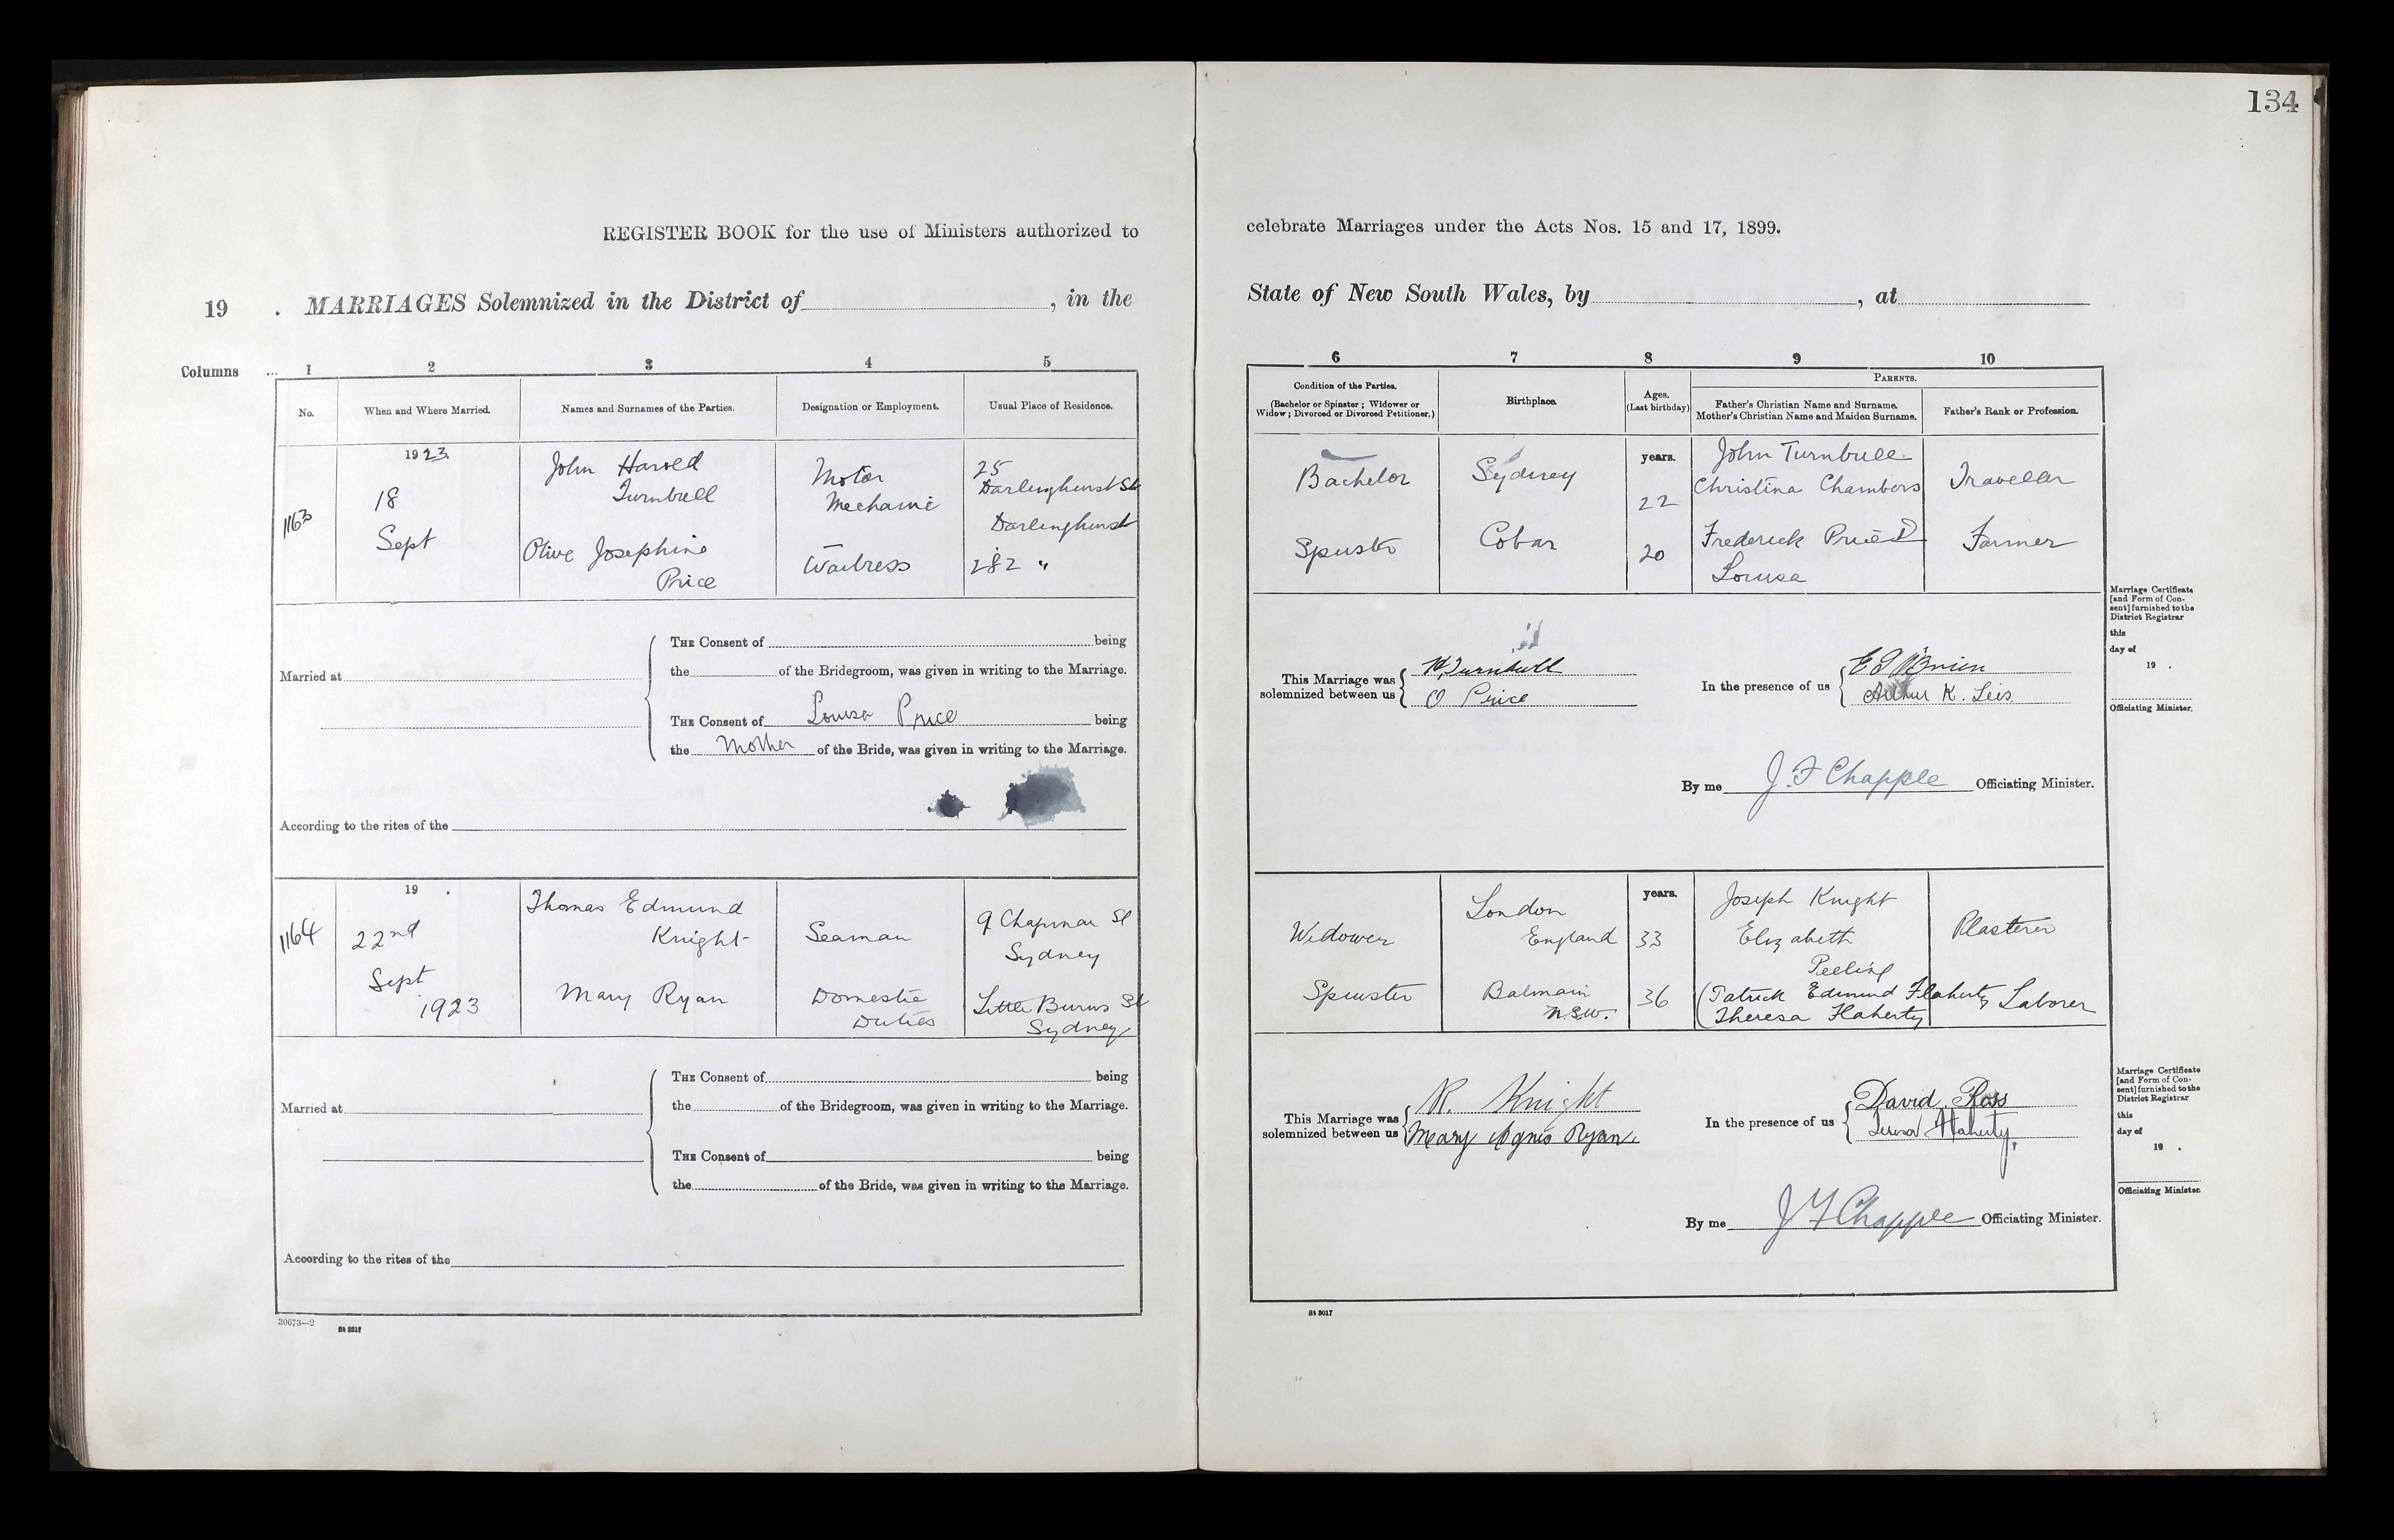 134
REGISTER BOOK for the use of Ministers authorized to celebrate Marriages under the Acts Nos. 15 and 17, 1899.
19 . MARRIAGES Solemnized in the District of , in the State of New South Wales, by , at
Columns ... 1 2 3 4 5 6 7 8 9 10
No. When and Where Married. Names and Surnames of the Parties. Designation or Employment. Usual Place of Residence.
Condition of the Parties.
(Bachelor or Spinster ; Widower or
Widow ; Divorced or Divorced Petitioner.)
Birthplace.
Ages.
(Last birthday)
PARENTS.
Father's Christian Name and Surname.
Mother's Christian Name and Maiden Surname.
Father's Rank or Profession.
1163
1923
18
Sept
John Harold
Turnbull
Olive Josephine
Price
Motor
Mechanic
Waitress
25
Darlinghurst St
Darlinghurst
282 "
Bachelor
Spinster
Sydney
Cobar
years.
22
20
John Turnbull
Christina Chambers
Frederick Price
Louisa
Traveller
Farmer
Married at
THE Consent of being
the of the Bridegroom, was given in writing to the Marriage.
THE Consent of Louisa Price being
the Mother of the Bride, was given in writing to the Marriage.
According to the rites of the
This Marriage was
solemnized between us
H Turnbull
O Price
In the presence of us
E J O'Brien
Arthur K. Leis
By me J. F Chapple Officiating Minister.
Marriage Certificate
[and Form of Con-
sent] furnished to the
District Registrar
this
day of
19 .
Officiating Minister.
1164
19 .
22nd
Sept
1923
Thomas Edmund
Knight
Mary Ryan
Seaman
Domestic
Duties
9 Chapman St
Sydney
Little Burns St
Sydney
Widower
Spinster
London
England
Balmain
N.S.W.
years.
33
36
Joseph Knight
Elizabeth
Peeling
(Patrick Edmund Flaherty
Theresa Flaherty
Plasterer
Laborer
Married at
THE Consent of being
the of the Bridegroom, was given in writing to the Marriage.
THE Consent of being
the of the Bride, was given in writing to the Marriage.
According to the rites of the
This Marriage was
solemnized between us
R. Knight
Mary Agnes Ryan.
In the presence of us
David Ross
Teresa Flaherty,
By me J F Chapple Officiating Minister.
Marriage Certificate
[and Form of Con-
sent] furnished to the
District Registrar
this
day of
19 .
Officiating Minister.
30673—2
St 3017
St 3017